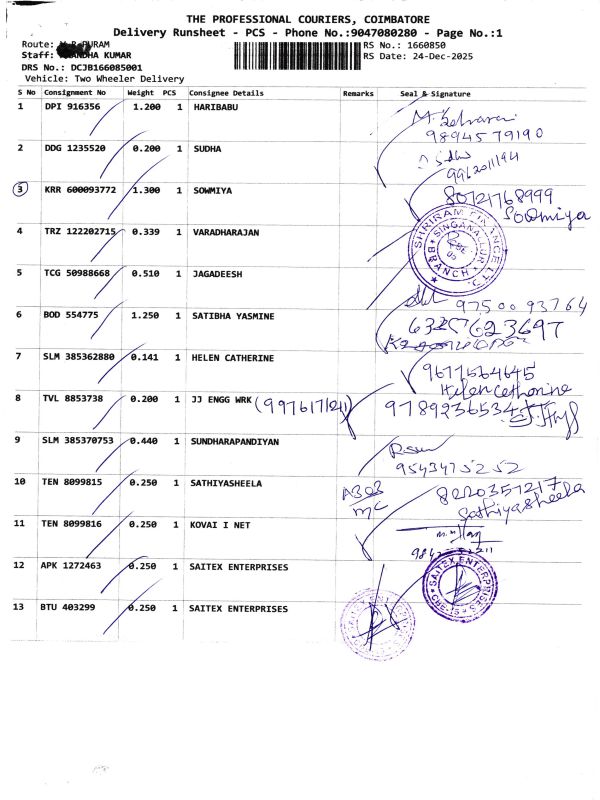 THE PROFESSIONAL COURIERS, COIMBATORE
Delivery Runsheet - PCS - Phone No.:9047080280 - Page No.:1
Route: PURAM
RS No.: 1660850
Staff: KUMAR
RS Date: 24-Dec-2025
DRS No.: DCJB166085001
Vehicle: Two Wheeler Delivery
S No Consignment No Weight PCS Consignee Details Remarks Seal & Signature
1 DPI 916356 1.200 1 HARIBABU
9894579190
2 DDG 1235520 0.200 1 SUDHA
3 KRR 600093772 1.300 1 SOWMIYA
8072176 8999
Sowmiya
4 TRZ 122202715 0.339 1 VARADHARAJAN
SHRIRAM FINANCE LTD
SINGANALLUR
BRANCH
5 TCG 50988668 0.510 1 JAGADEESH
97500 93764
6 BOD 554775 1.250 1 SATIBHA YASMINE
7 SLM 385362880 0.141 1 HELEN CATHERINE
Helen Catherine
8 TVL 8853738 0.200 1 JJ ENGG WRK (9976171241)
9789236534
9 SLM 385370753 0.440 1 SUNDHARAPANDIYAN
9543475252
10 TEN 8099815 0.250 1 SATHIYASHEELA
A303
MC
8220357217
Sathiyasheela
11 TEN 8099816 0.250 1 KOVAI I NET
12 APK 1272463 0.250 1 SAITEX ENTERPRISES
SAITEX ENTERPRISES
CBE-15
13 BTU 403299 0.250 1 SAITEX ENTERPRISES